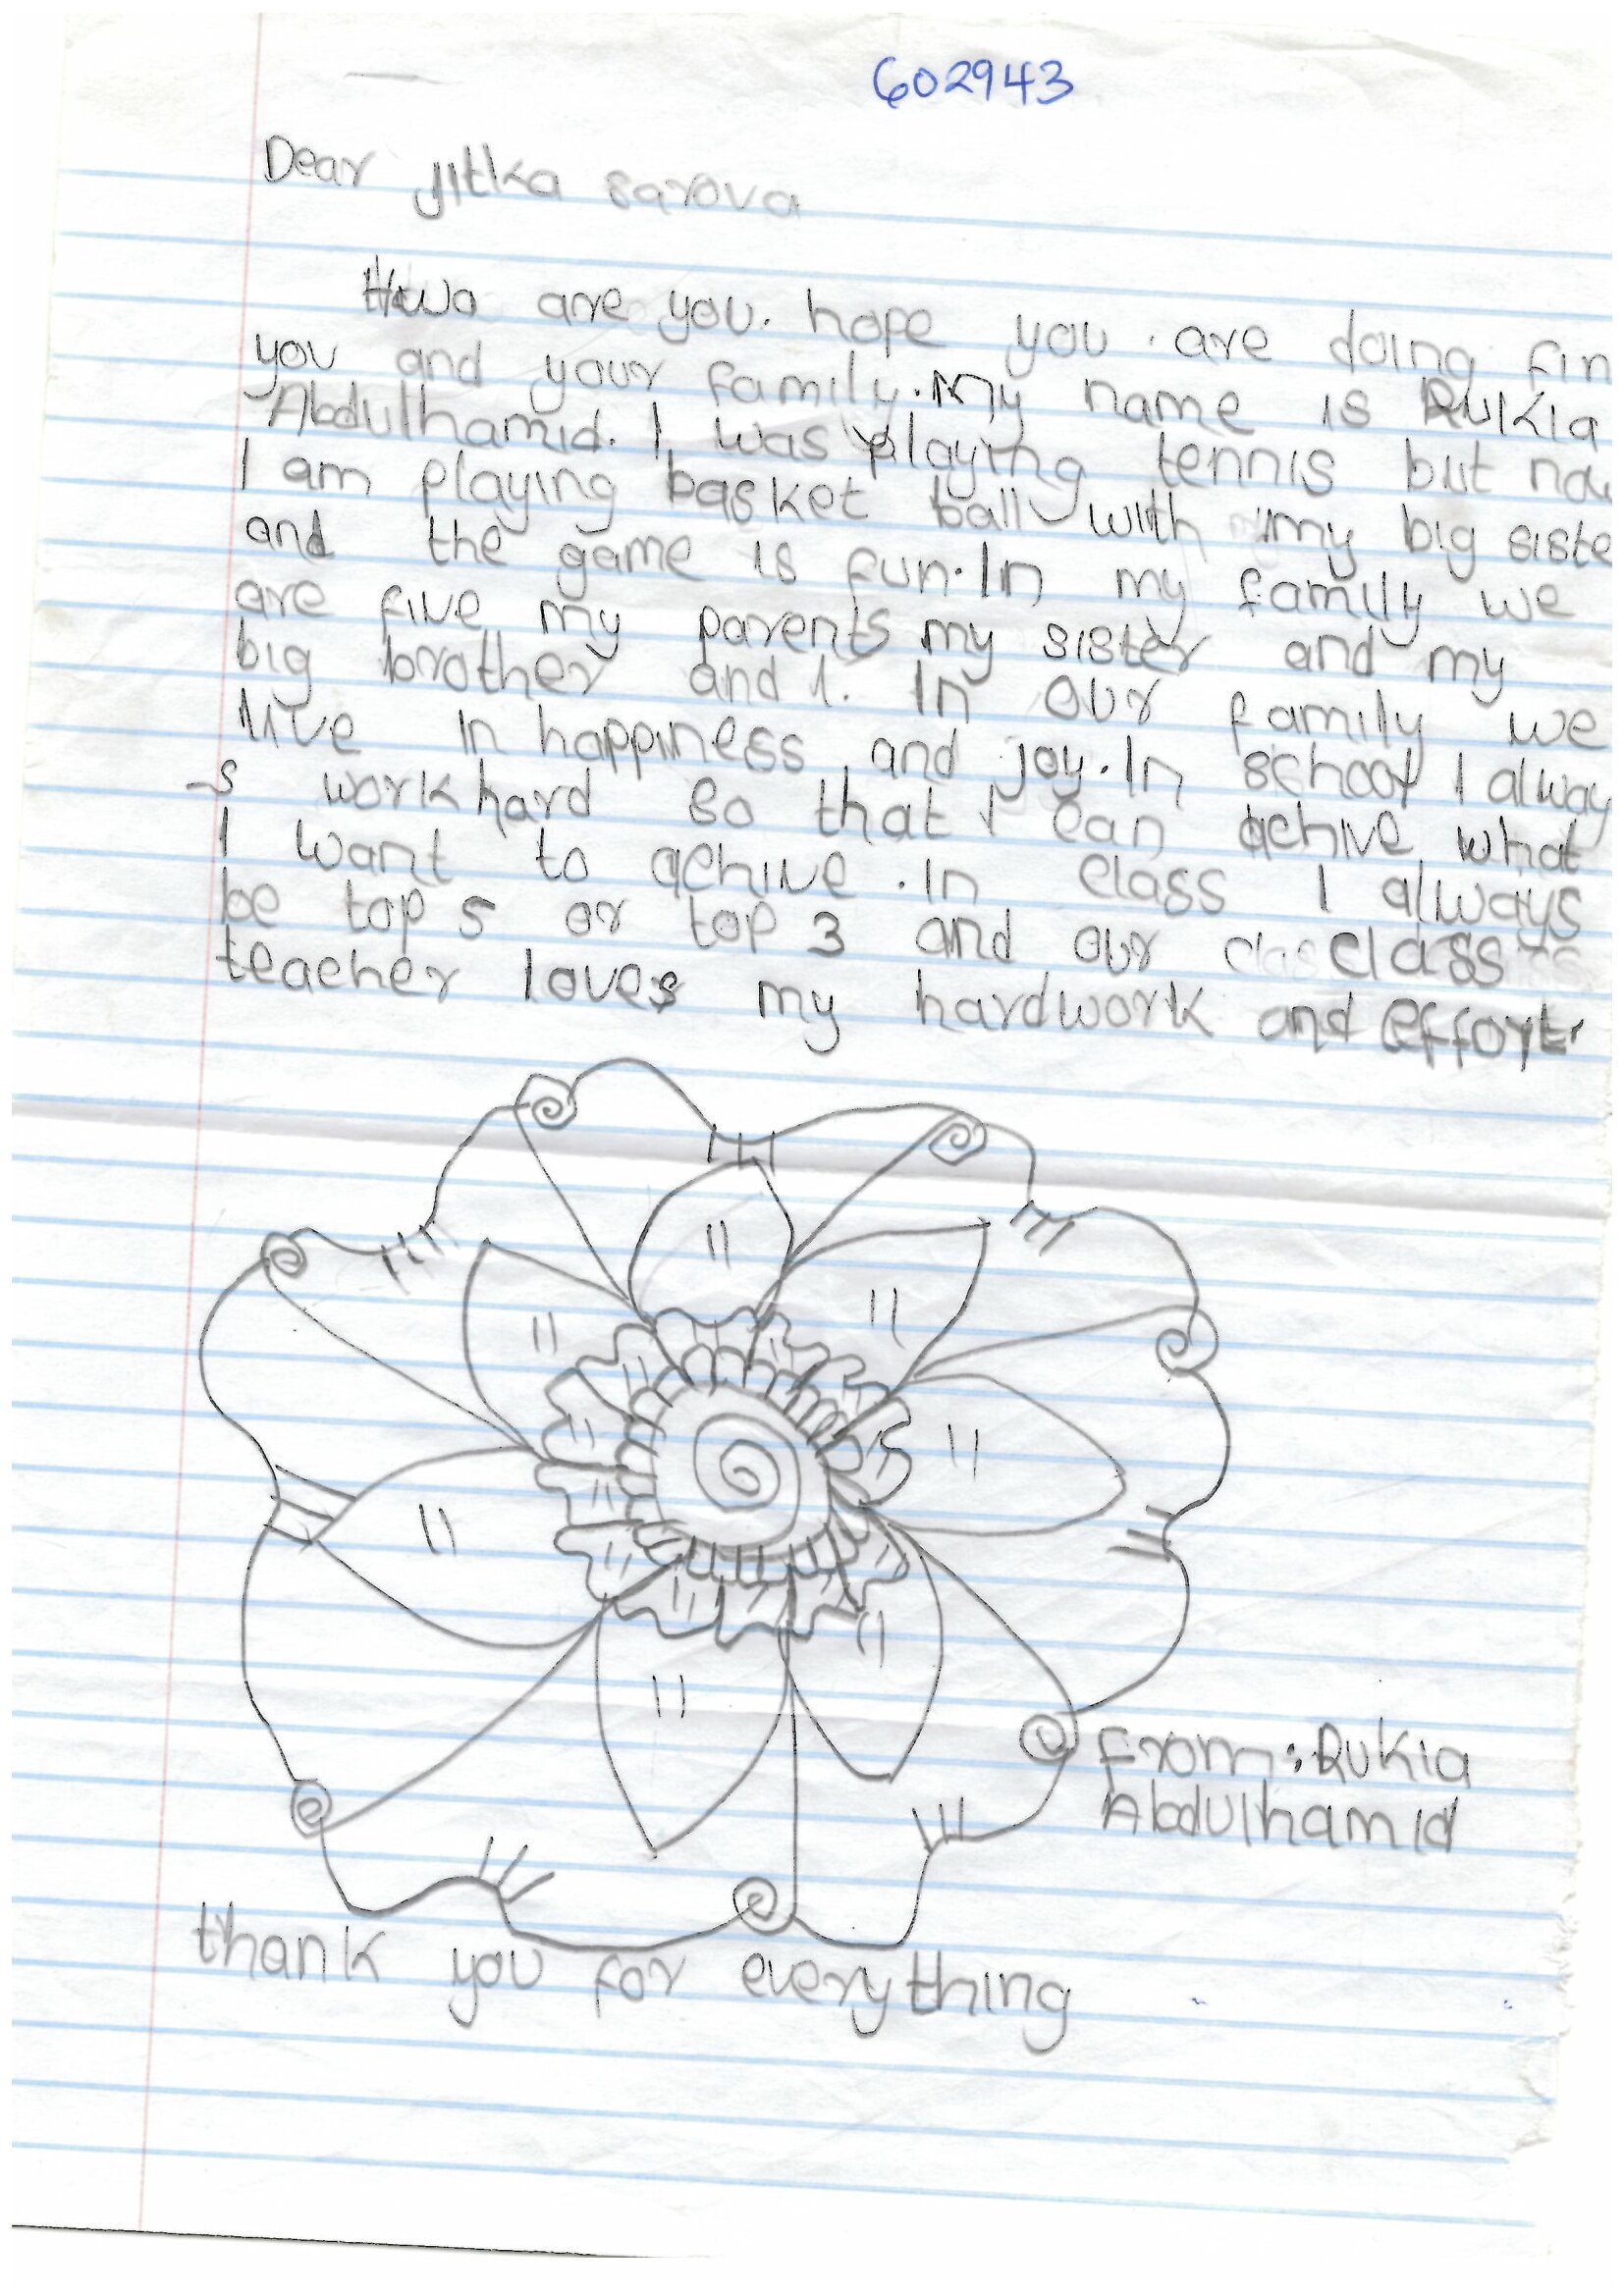 602943
Dear jitka sarova
Hwo are you. hope you are doing fin
you and your family. My name is Rukia
Abdulhamid. I was playing tennis but now
I am playing basket ball with my big siste
and the game is fun. In my family we
are five my parents my sister and my
big brother and I. In our family we
live in happiness and joy. In school I alway
-s work hard so that I can achive what
I want to achive. In class I always
be top 5 or top 3 and our class
teacher loves my hardwork and effort.
From: Rukia
Abdulhamid
thank you for everything